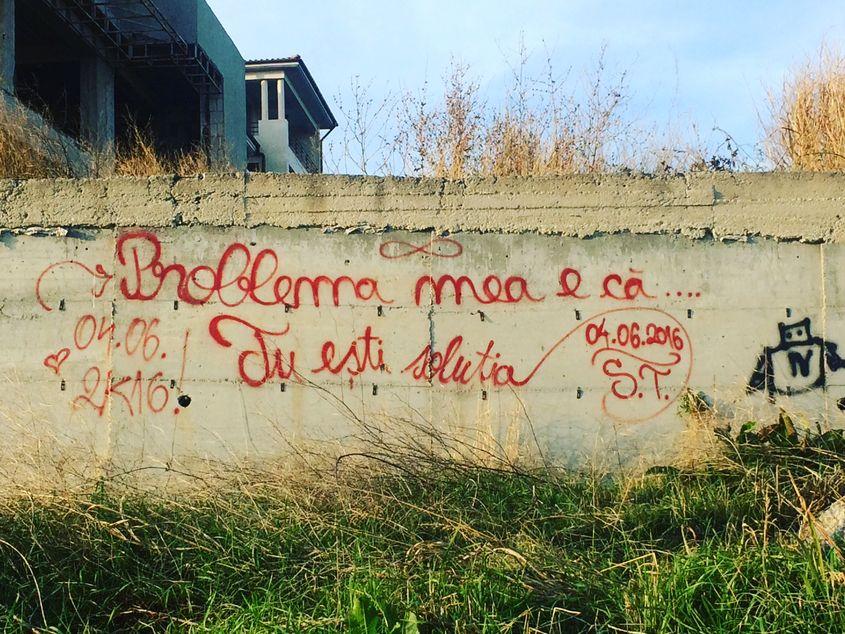 Problema mea e că ....
04.06.
2K16!
Tu ești soluția
04.06.2016
S.T.